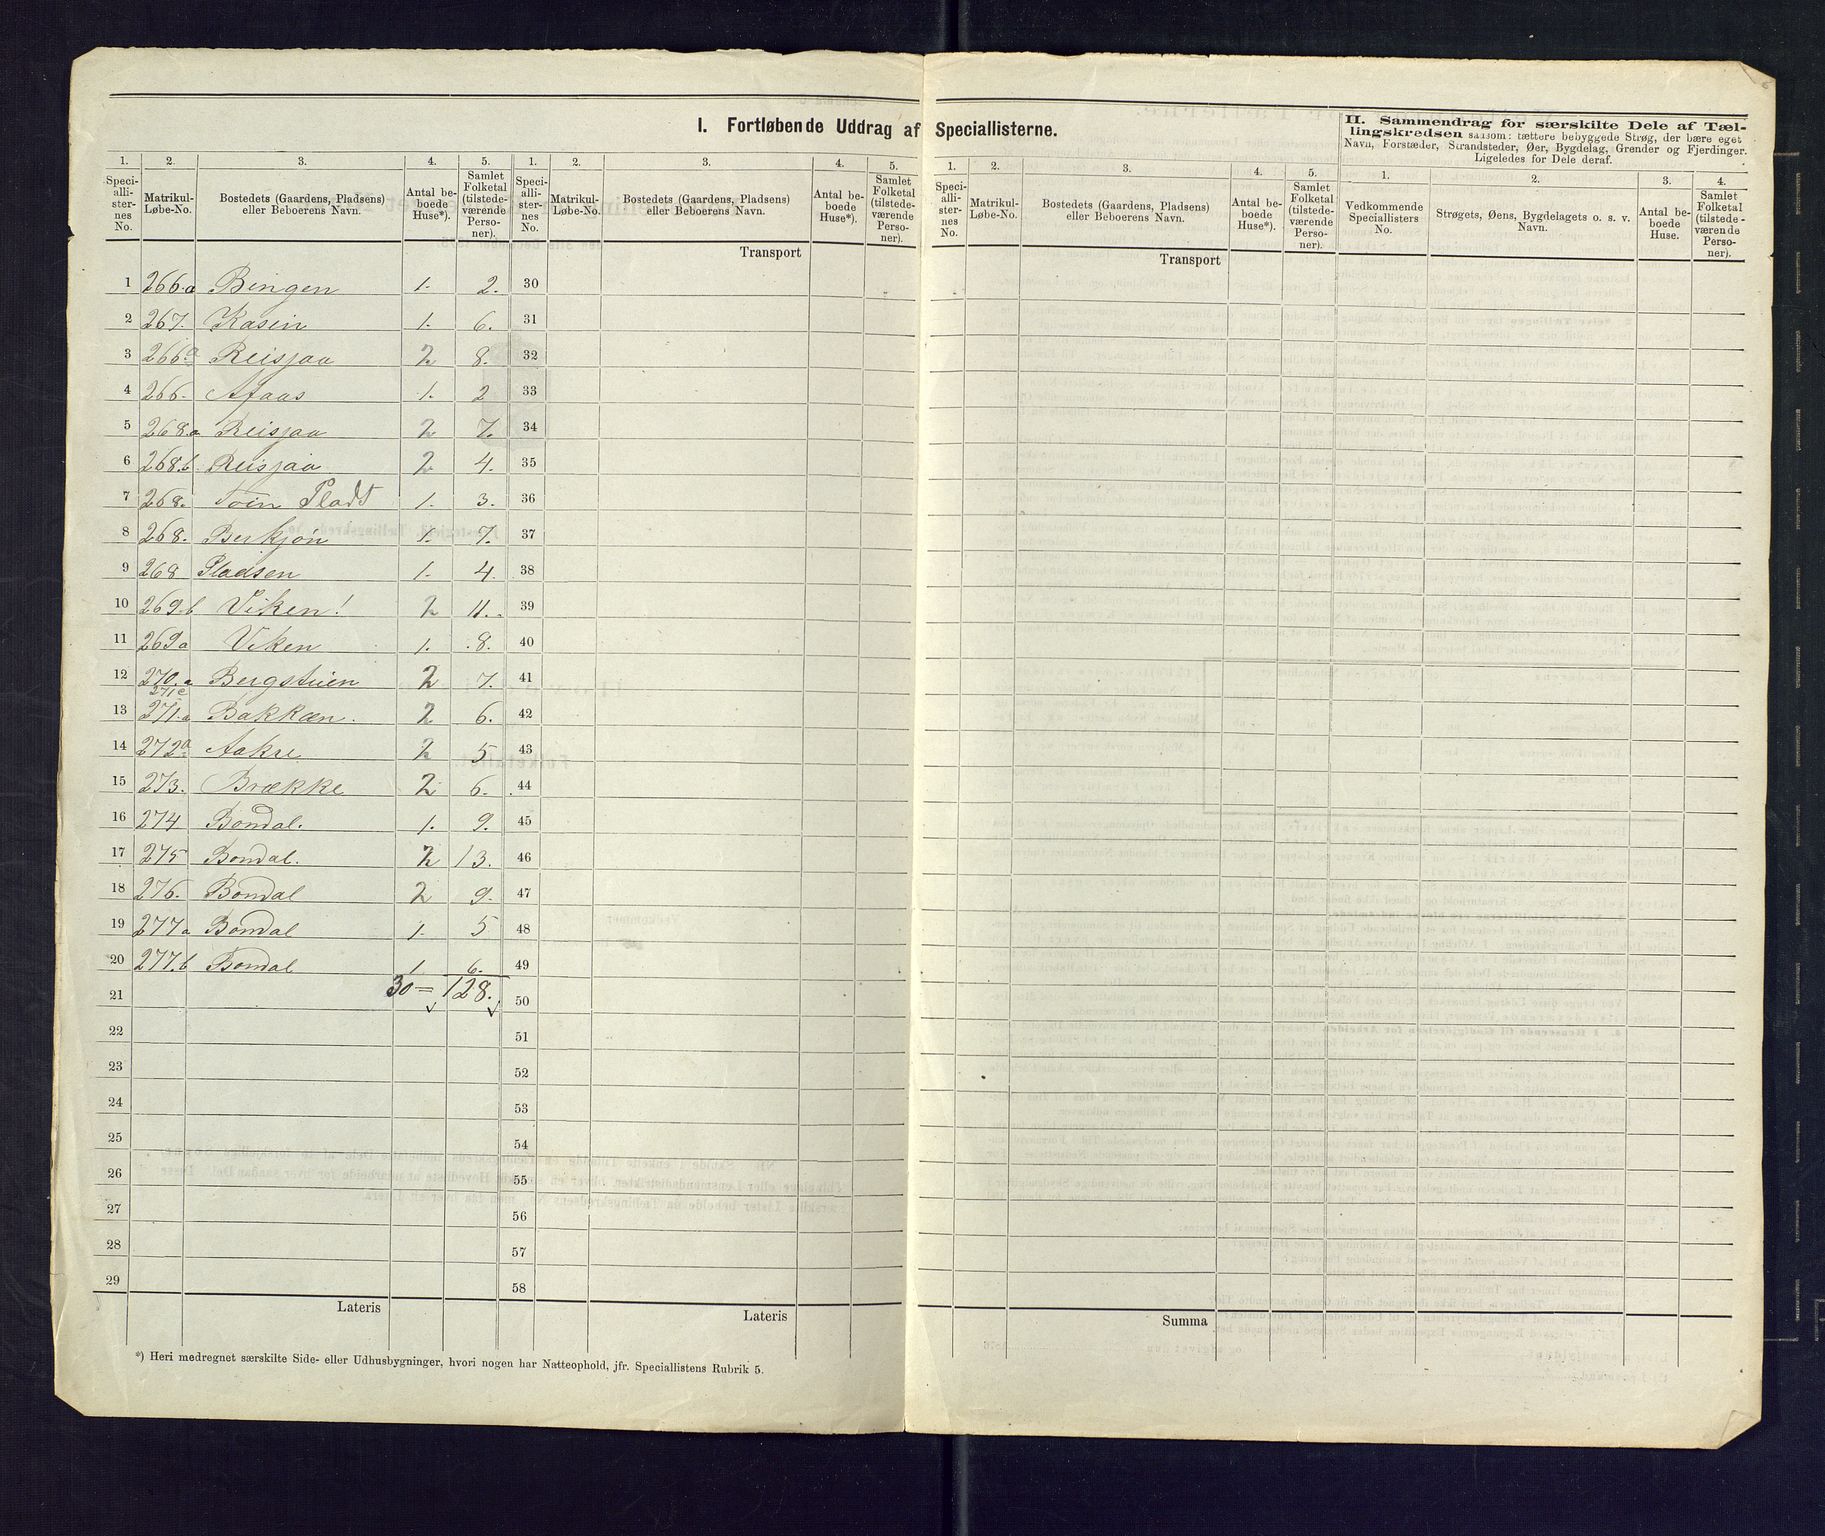 I. Fortløbende Uddrag af Speciallisterne.
II. Sammendrag for særskilte Dele af Tæl-
lingskredsen saasom: tættere bebyggede Strøg, der bære eget
Navn, Forstæder, Strandsteder, Øer, Bygdelag, Grender og Fjerdinger.
Ligeledes for Dele deraf.
1. 2. 3. 4. 5. 1. 2. 3. 4. 5. 1. 2. 3. 4. 5. 1. 2. 3. 4.
Speci-alli-ster-nes No. Matrikul-Løbe-No. Bostedets (Gaardens, Pladsens) eller Beboerens Navn. Antal be-boede Huse*). Samlet Folketal (tilstede-værende Perso-ner).
Speci-alli-ster-nes No. Matrikul-Løbe-No. Bostedets (Gaardens, Pladsens) eller Beboerens Navn. Antal be-boede Huse*). Samlet Folketal (tilstede-værende Perso-ner).
Speci-alli-ster-nes No. Matrikul-Løbe-No. Bostedets (Gaardens, Pladsens) eller Beboerens Navn. Antal be-boede Huse*). Samlet Folketal (tilstede-værende Perso-ner).
Vedkommende Speciallisters No. Strøgets, Øens, Bygdelagets o. s. v. Navn. Antal be-boede Huse. Samlet Folketal (tilstede-værende Perso-ner).
Transport Transport
1 266.a Bingen 1. 2. 30
2 267. Kasin 1. 6. 31
3 266.a Reisjaa 2 8. 32
4 266. Afaas 1. 2 33
5 268.a Reisjaa 2 7. 34
6 268.b Reisjaa 2 4. 35
7 268. Pladt 1. 3. 36
8 268. Berkjøn 1. 7. 37
9 268 Pladsen 1. 4. 38
10 269.b Viken! 2 11. 39
11 269a Viken 1. 8. 40
12 270.a 271c Bergstuen 2 7. 41
13 271.a Bakkæn. 2 6. 42
14 272a Aakre 2 5 43
15 273. Brække 2 6. 44
16 274 Bondal. 1. 9. 45
17 275 Bondal. 2 13. 46
18 276. Bondal 2 9. 47
19 277a Bondal 1. 5 48
20 277.b Bondal 1 6. 49
21 30 = 128. 50
22 51
23 52
24 53
25 54
26 55
27 56
28 57
29 58
Lateris Lateris Summa
*) Heri medregnet særskilte Side- eller Udhusbygninger, hvori nogen har Natteophold, jfr. Speciallistens Rubrik 5.